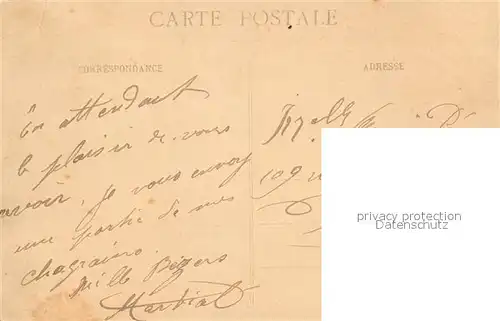 CARTE POSTALE
CORRESPONDANCE
ADRESSE
En attendant
le plaisir de vous
avoir, je vous envoy
une partie de mes
chagrins.
Mille Baisers
Martial
109
privacy protection
(Datenschutz)